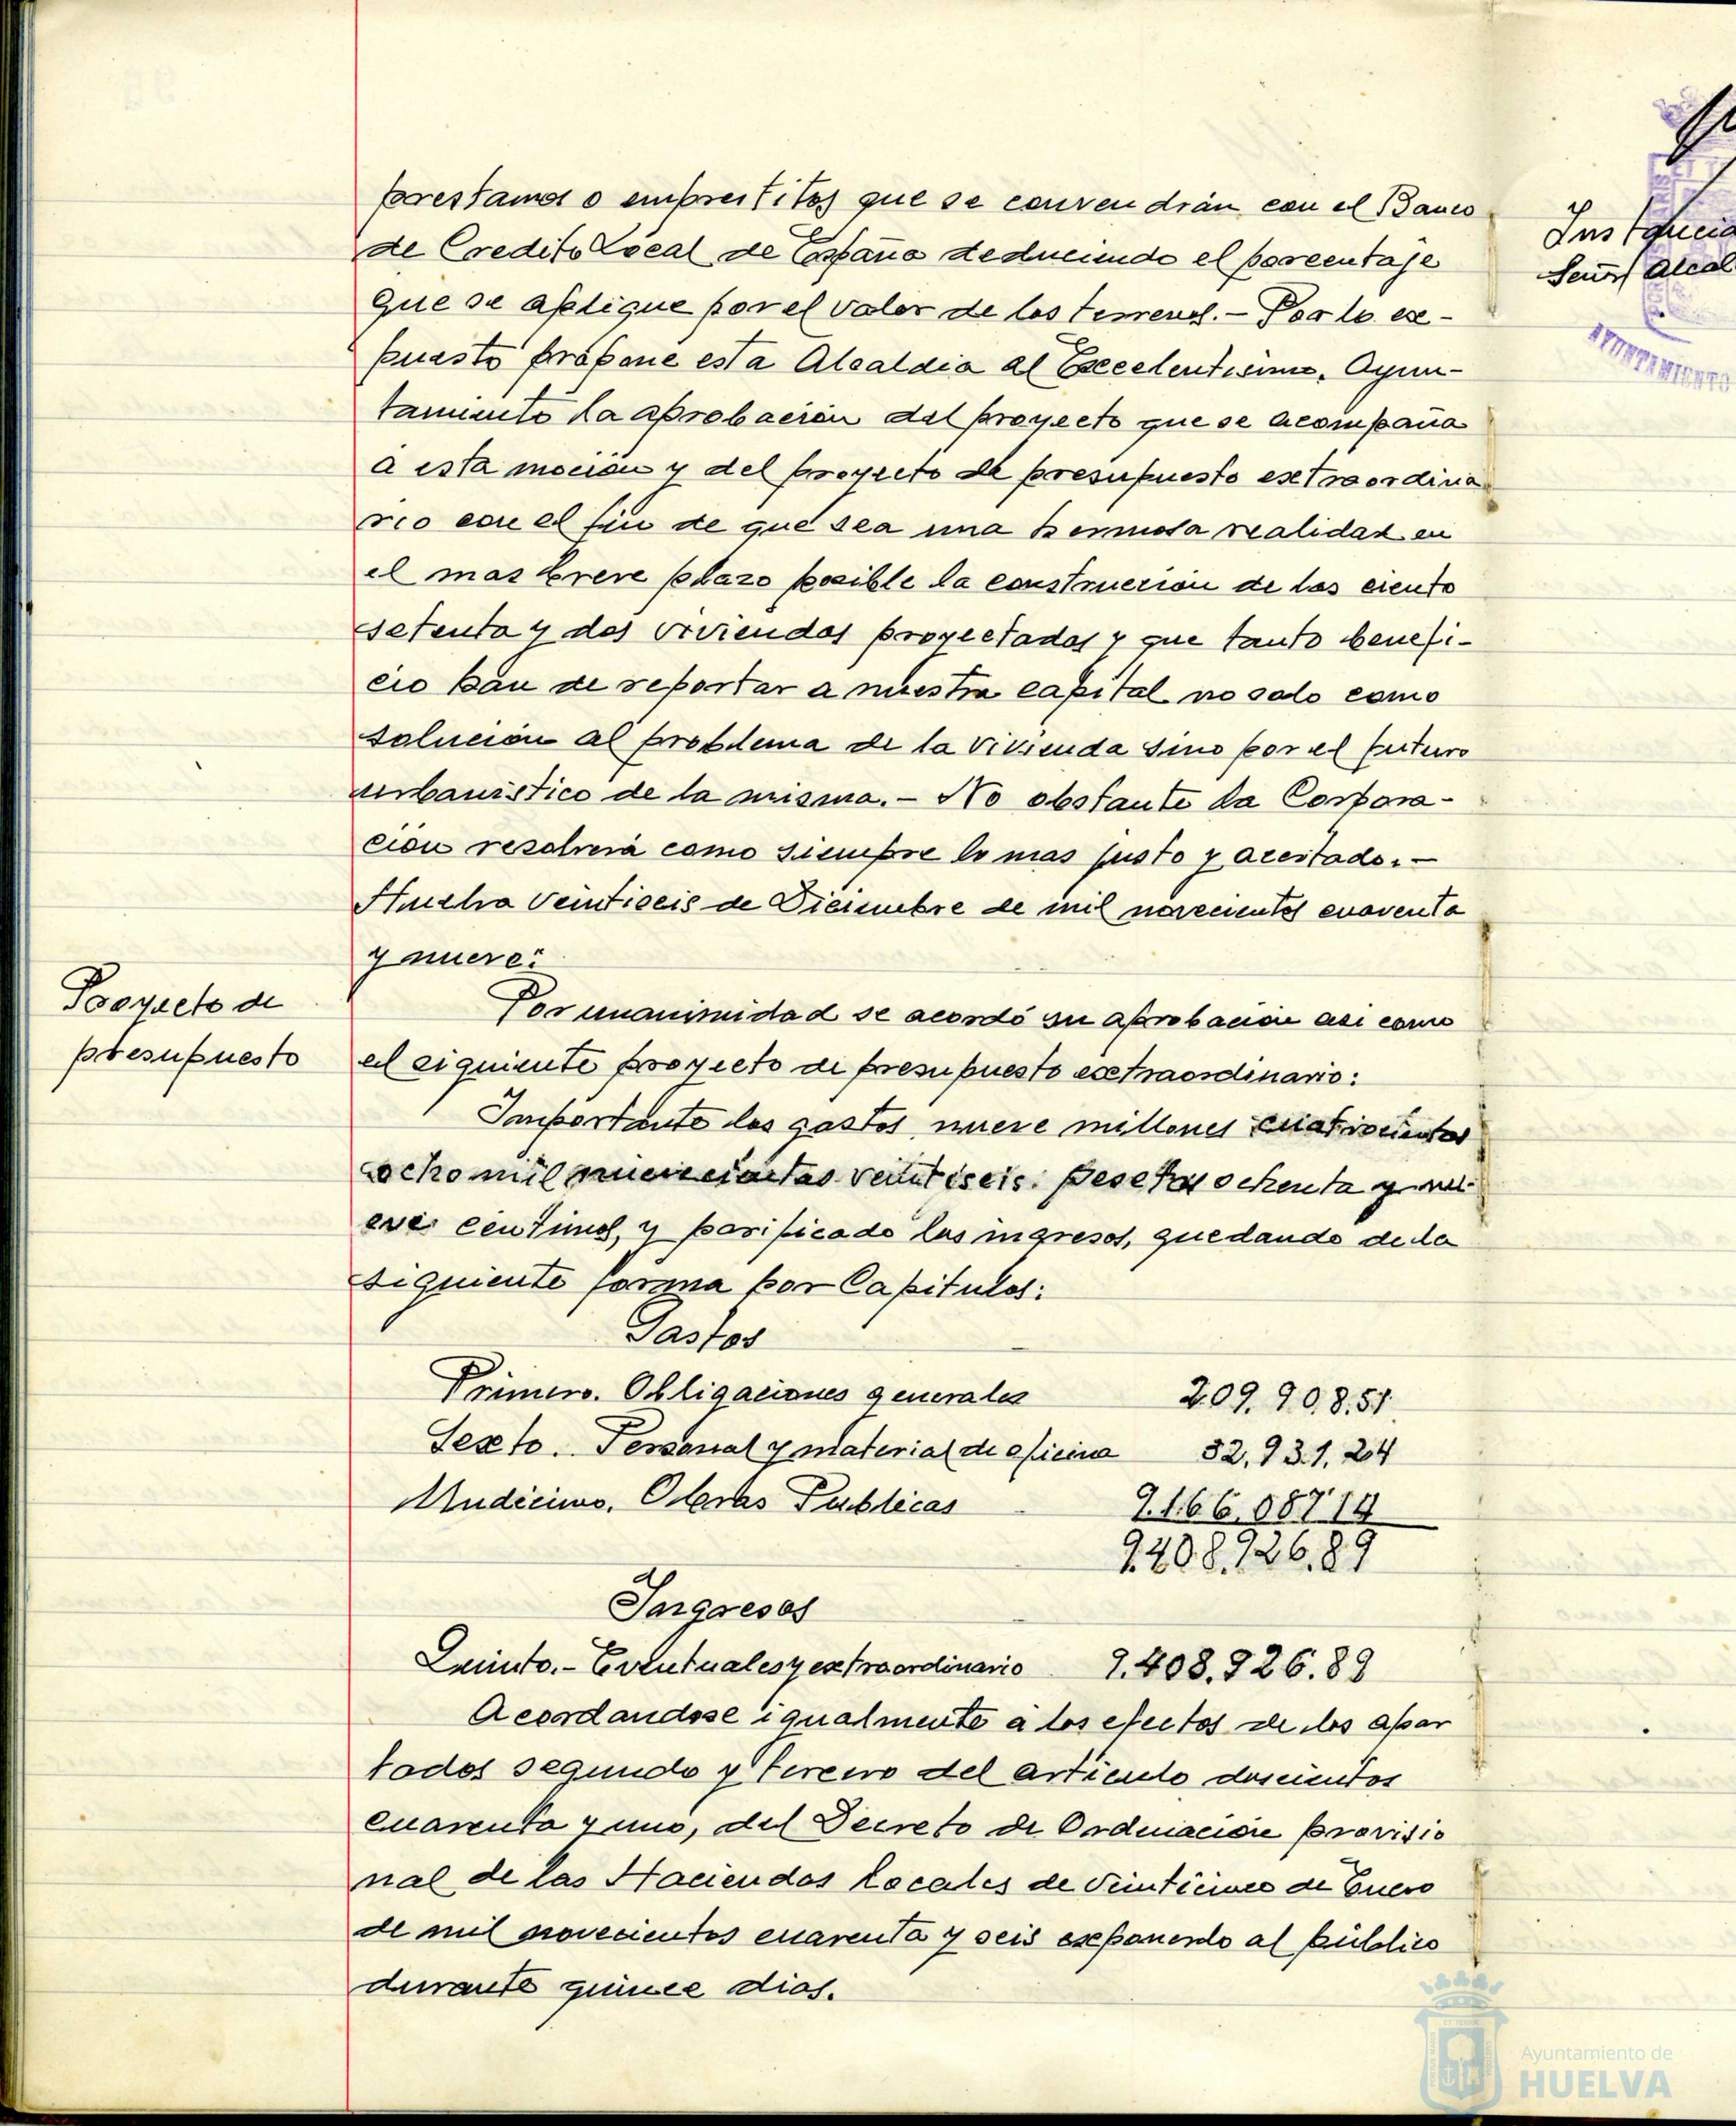 prestamos o emprestitos que se convendrán con el Banco
de Credito Local de España deduciendo el porcentaje
que se aplique por el valor de los terrenos.- Por lo ex-
puesto propone esta Alcaldia al Excelentisimo. Ayun-
tamiento la aprobación del proyecto que se acompaña
a esta moción y del proyecto de presupuesto extraordina
rio con el fin de que sea una hermosa realidad en
el mas breve plazo posible la construcción de las ciento
setenta y dos viviendas proyectadas y que tanto benefi-
cio han de reportar a nuestra capital no solo como
solución al problema de la vivienda sino por el futuro
urbanistico de la misma.- No obstante la Corpora-
ción resolverá como siempre lo mas justo y acertado.-
Huelva veintiseis de Diciembre de mil novecientos cuarenta
y nueve:
Proyecto de
presupuesto
Por unanimidad se acordó su aprobación asi como
el siguiente proyecto de presupuesto extraordinario:
Importante los gastos nueve millones cuatrocientas
ocho mil novecientas veintiseis pesetas ochenta y nu
eve centimos, y parificado los ingresos, quedando de la
siguiente forma por Capitulos:
Gastos
Primero. Obligaciones generales 209.908.51
Sexto. Personal y material de oficina 32.931.24
Undécimo. Obras Publicas 9.166.087 14
9.408.926.89
Ingresos
Quinto.- Eventuales y extraordinario 9.408.926.89
Acordandose igualmente a los efectos de los apar
tados segundo y tercero del articulo doscientos
cuarenta y uno, del Decreto de Ordenación provisio
nal de las Haciendas Locales de veinticinco de Enero
de mil novecientos cuarenta y seis exponerlo al público
durante quince dias.
Instancia
Señor Alcal
AYUNTAMIENTO
Ayuntamiento de
HUELVA